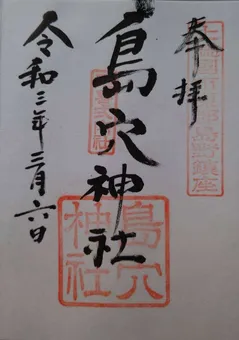 奉拝
島穴神社
令和三年三月六日
島穴
神社